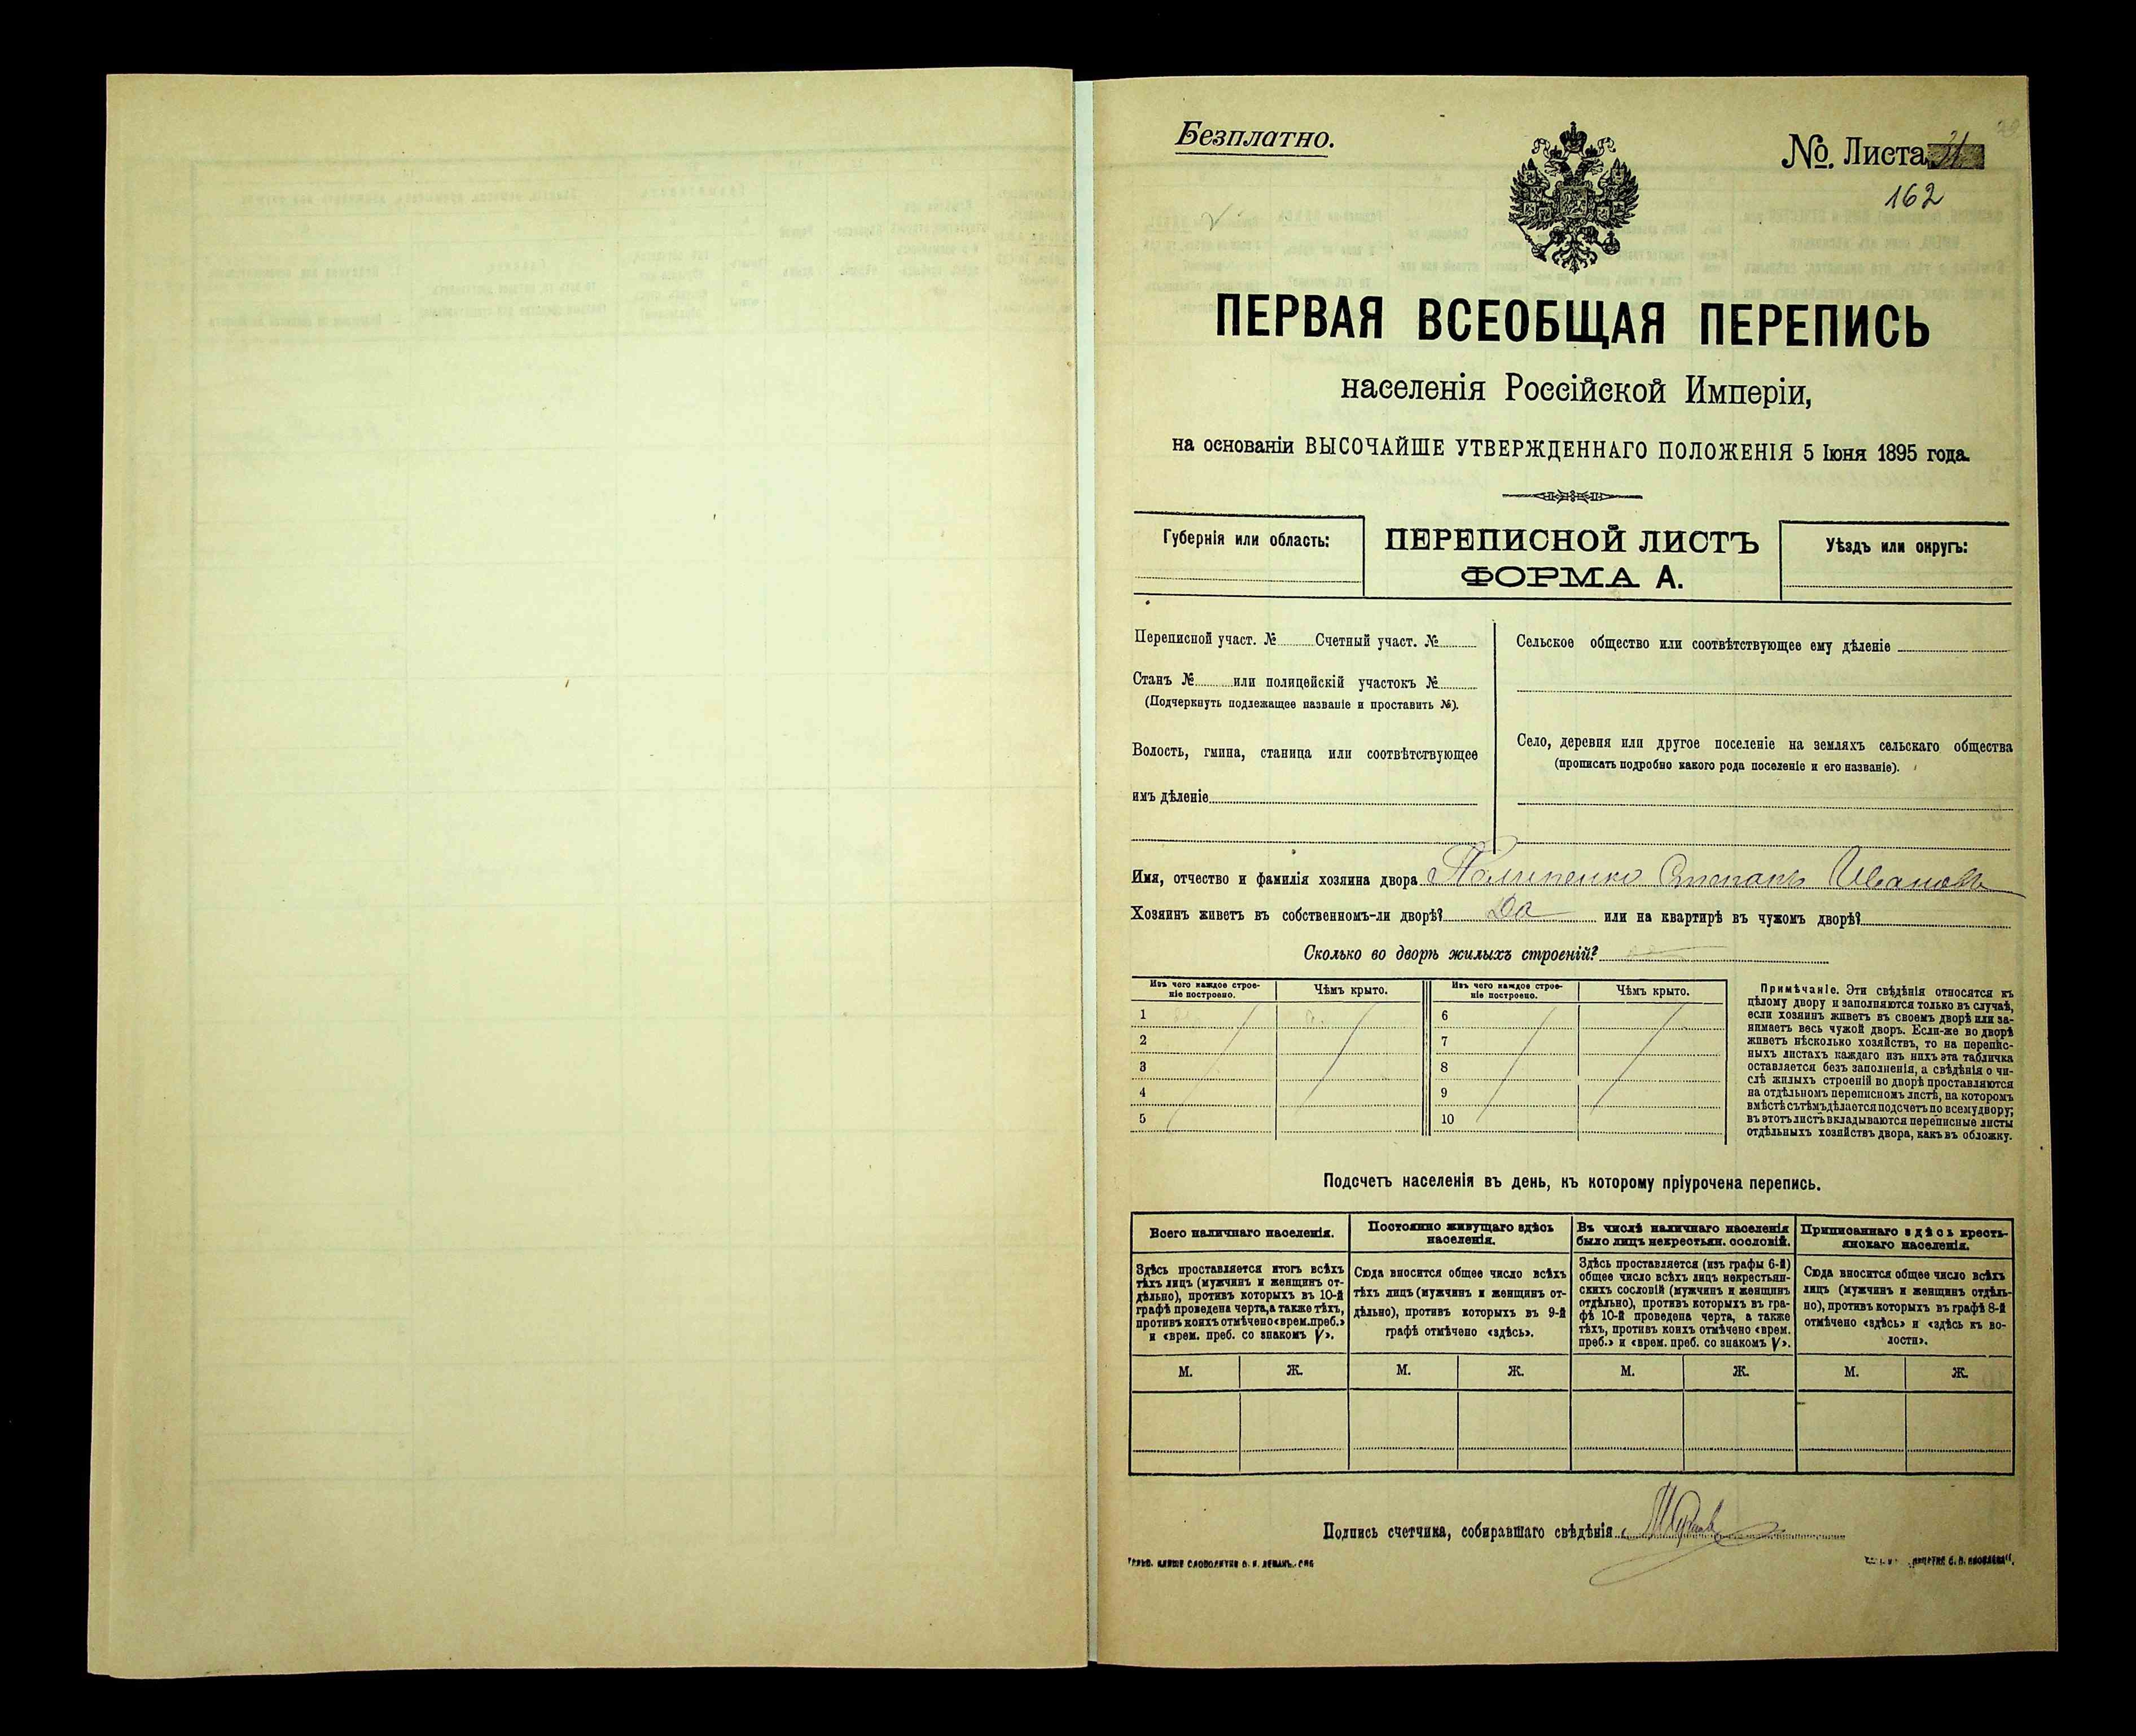 Безплатно.
№. Листа
162
ПЕРВАЯ ВСЕОБЩАЯ ПЕРЕПИСЬ
населенія Россійской Имперіи,
на основаніи ВЫСОЧАЙШЕ УТВЕРЖДЕННАГО ПОЛОЖЕНІЯ 5 Іюня 1895 года.
Губернія или область:
ПЕРЕПИСНОЙ ЛИСТЪ
ФОРМА А.
Уѣздъ или округъ:
Переписной участ. № Счетный участ. №
Станъ № или полицейскій участокъ №
(Подчеркнуть подлежащее названіе и проставить №).
Волость, гмина, станица или соотвѣтствующее
имъ дѣленіе
Сельское общество или соотвѣтствующее ему дѣленіе
Село, деревня или другое поселеніе на земляхъ сельскаго общества
(прописать подробно какого рода поселеніе и его названіе).
Имя, отчество и фамилія хозяина двора Степанъ Ивановъ
Хозяинъ живетъ въ собственномъ-ли дворѣ? Да или на квартирѣ въ чужомъ дворѣ?
Сколько во дворѣ жилыхъ строеній?
Изъ чего каждое строе-
ніе построено.
Чѣмъ крыто.
Изъ чего каждое строе-
ніе построено.
Чѣмъ крыто.
1 6
2 7
3 8
4 9
5 10
Примѣчаніе. Эти свѣдѣнія относятся къ
цѣлому двору и заполняются только въ случаѣ,
если хозяинъ живетъ въ своемъ дворѣ или за-
нимаетъ весь чужой дворъ. Если-же во дворѣ
живетъ нѣсколько хозяйствъ, то на перепис-
ныхъ листахъ каждаго изъ нихъ эта табличка
оставляется безъ заполненія, а свѣдѣнія о чи-
слѣ жилыхъ строеній во дворѣ проставляются
на отдѣльномъ переписномъ листѣ, на которомъ
вмѣстѣ съ тѣмъ дѣлается подсчетъ по всему двору;
въ этотъ листъ вкладываются переписные листы
отдѣльныхъ хозяйствъ двора, какъ въ обложку.
Подсчетъ населенія въ день, къ которому пріурочена перепись.
Всего наличнаго населенія.
Постоянно живущаго здѣсь
населенія.
Въ числѣ наличнаго населенія
было лицъ некрестьян. сословій.
Приписаннаго здѣсь кресть-
янскаго населенія.
Здѣсь проставляется итогъ всѣхъ
тѣхъ лицъ (мужчинъ и женщинъ от-
дѣльно), противъ которыхъ въ 10-й
графѣ проведена черта, а также тѣхъ,
противъ коихъ отмѣчено «врем. преб.»
и «врем. преб. со знакомъ V».
Сюда вносится общее число всѣхъ
тѣхъ лицъ (мужчинъ и женщинъ от-
дѣльно), противъ которыхъ въ 9-й
графѣ отмѣчено «здѣсь».
Здѣсь проставляется (изъ графы 6-й)
общее число всѣхъ лицъ некрестьян-
скихъ сословій (мужчинъ и женщинъ
отдѣльно), противъ которыхъ въ гра-
фѣ 10-й проведена черта, а также
тѣхъ, противъ коихъ отмѣчено «врем.
преб.» и «врем. преб. со знакомъ V».
Сюда вносится общее число всѣхъ
лицъ (мужчинъ и женщинъ отдѣль-
но), противъ которыхъ въ графѣ 8-й
отмѣчено «здѣсь» и «здѣсь къ во-
лости».
М. Ж. М. Ж. М. Ж. М. Ж.
Подпись счетчика, собиравшаго свѣдѣнія